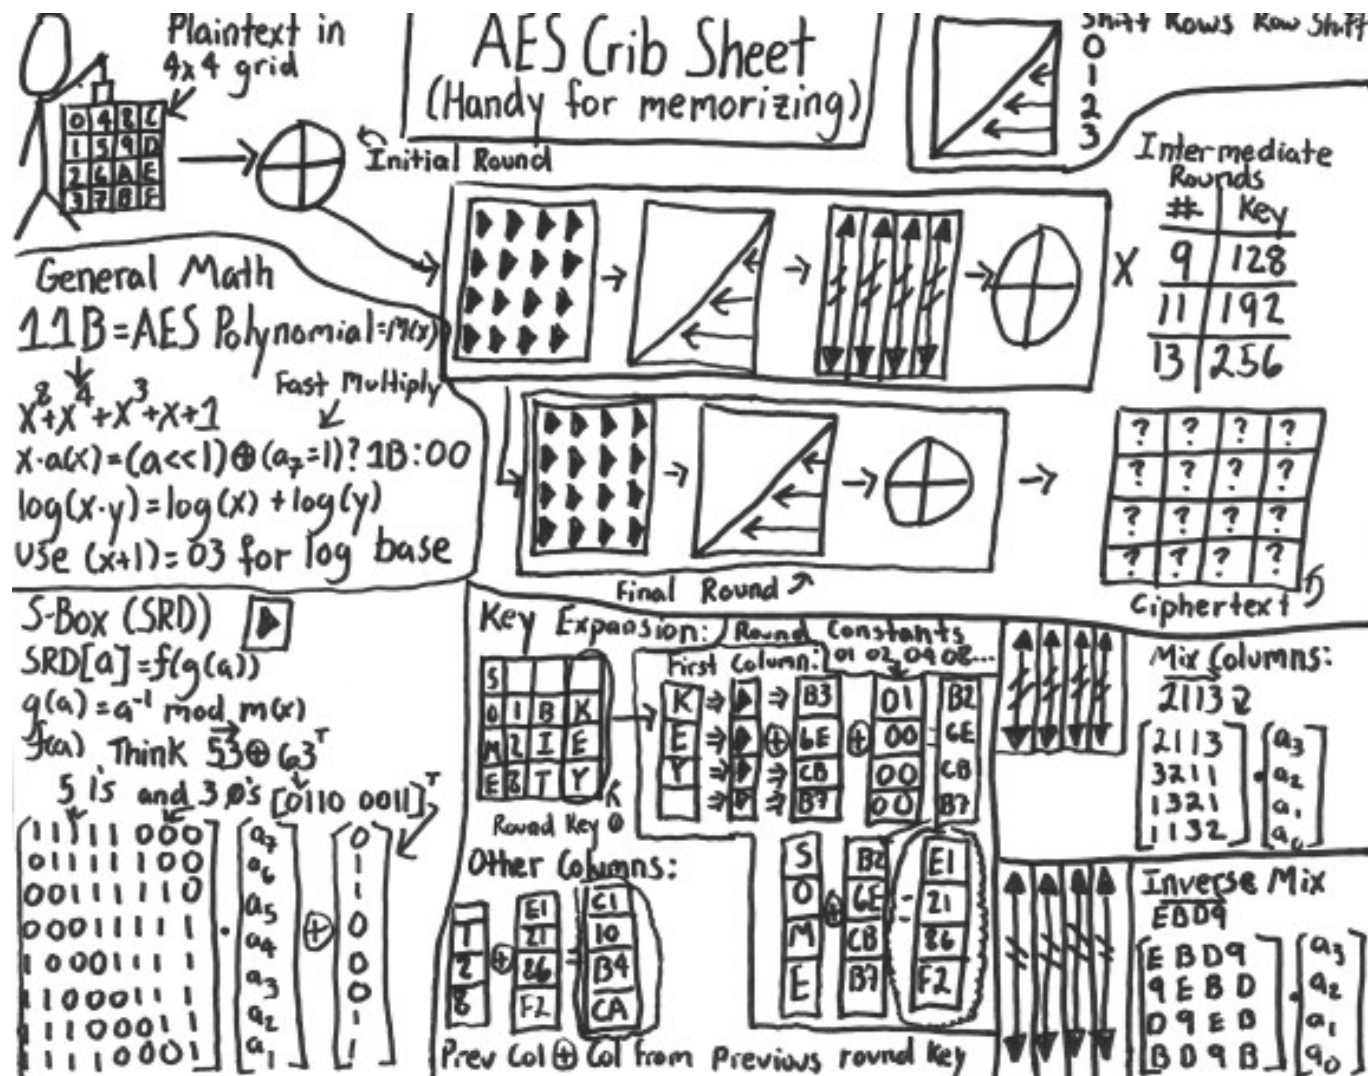 Plaintext in
4x4 grid
0 4 8 C
1 5 9 D
2 6 A E
3 7 B F
Initial Round
AES Crib Sheet
(Handy for memorizing)
Shift Rows Row Shift
0
1
2
3
Intermediate
Rounds
# Key
9 128
11 192
13 256
X
General Math
11B=AES Polynomial=M(x)
Fast Multiply
x^8+x^4+x^3+x+1
x·a(x)=(a<<1)⊕(a7=1)?1B:00
log(x·y)=log(x)+log(y)
use (x+1)=03 for log base
Final Round
? ? ? ?
? ? ? ?
? ? ? ?
? ? ? ?
Ciphertext
S-Box (SRD)
SRD[a]=f(g(a))
g(a)=a^-1 mod m(x)
f(a) Think 53⊕63^T
5 1's and 3 0's [0110 0011]^T
1 1 1 1 1 0 0 0
0 1 1 1 1 1 0 0
0 0 1 1 1 1 1 0
0 0 0 1 1 1 1 1
1 0 0 0 1 1 1 1
1 1 0 0 0 1 1 1
1 1 1 0 0 0 1 1
1 1 1 1 0 0 0 1
·
a7
a6
a5
a4
a3
a2
a1
⊕
0
1
1
0
0
0
1
1
Key Expansion:
Round Constants
01 02 04 08...
First Column:
S
O 1 B K
M 2 I E
E 8 T Y
Round Key 0
K B3 01 B2
E ⊕ 6E ⊕ 00 = 6E
Y CB 00 CB
B7 00 B7
S B2 E1
O ⊕ 6E = 21
M CB 86
E B7 F2
Other Columns:
E1 C1
1 21 10
2 ⊕ 86 = B4
8 F2 CA
Prev Col ⊕ Col from previous round key
Mix Columns:
2113
2113
3211
1321
1132
·
a3
a2
a1
a0
Inverse Mix
EBD9
E B D 9
9 E B D
D 9 E B
B D 9 B
·
a3
a2
a1
a0